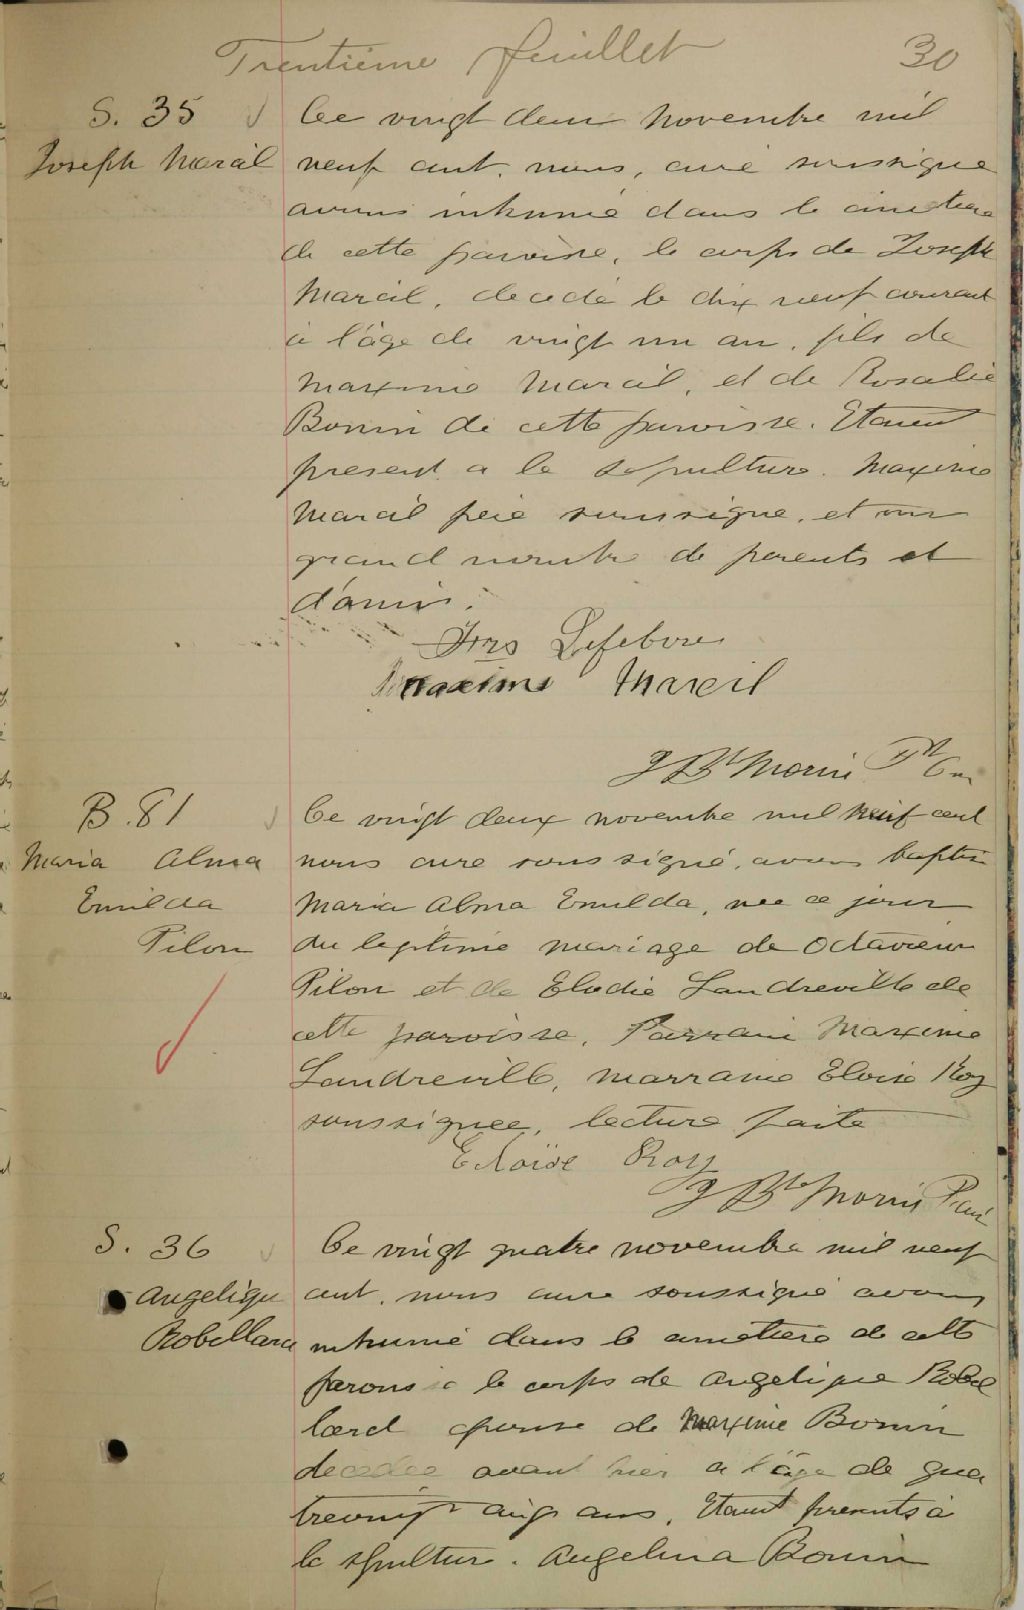 Trentième feuillet 30
S. 35
Joseph Marcil
Ce vingt deux Novembre mil
neuf cent, nous, curé soussigné
avons inhumé dans le cimetière
de cette paroisse, le corps de Joseph
Marcil, decedé le dix neuf courant
à l'âge de vingt un an, fils de
Maxime Marcil, et de Rosalie
Bonin de cette paroisse. Etant
present a la sépulture. Maxime
Marcil père soussigné, et un
grand nombre de parents et
d'amis.
Frs Lefebvre
Maxime Marcil
J Bte Morin Ptr
B. 81
Maria Alma
Emilda
Pilon
Ce vingt deux novembre mil neuf cent
nous cure sous signé, avons baptisé
Maria Alma Emilda, nee ce jour
du legitime mariage de Octavien
Pilon et de Elodie Landreville de
cette paroisse, Parrain Maxime
Landreville, marraine Eloise Roy
soussignee, lecture faite
Eloïse Roy
J Bte Morin
S. 36
Angelique
Robillard
Ce vingt quatre novembre mil neuf
cent, nous cure soussigné avons
inhumé dans le cimetière de cette
paroisse le corps de Angelique Robil
lard epouse de Maxime Bonin
decedée avant hier a l'âge de qua
trevingt cinq ans, Etant presents à
la sépulture. Angelina Bonin